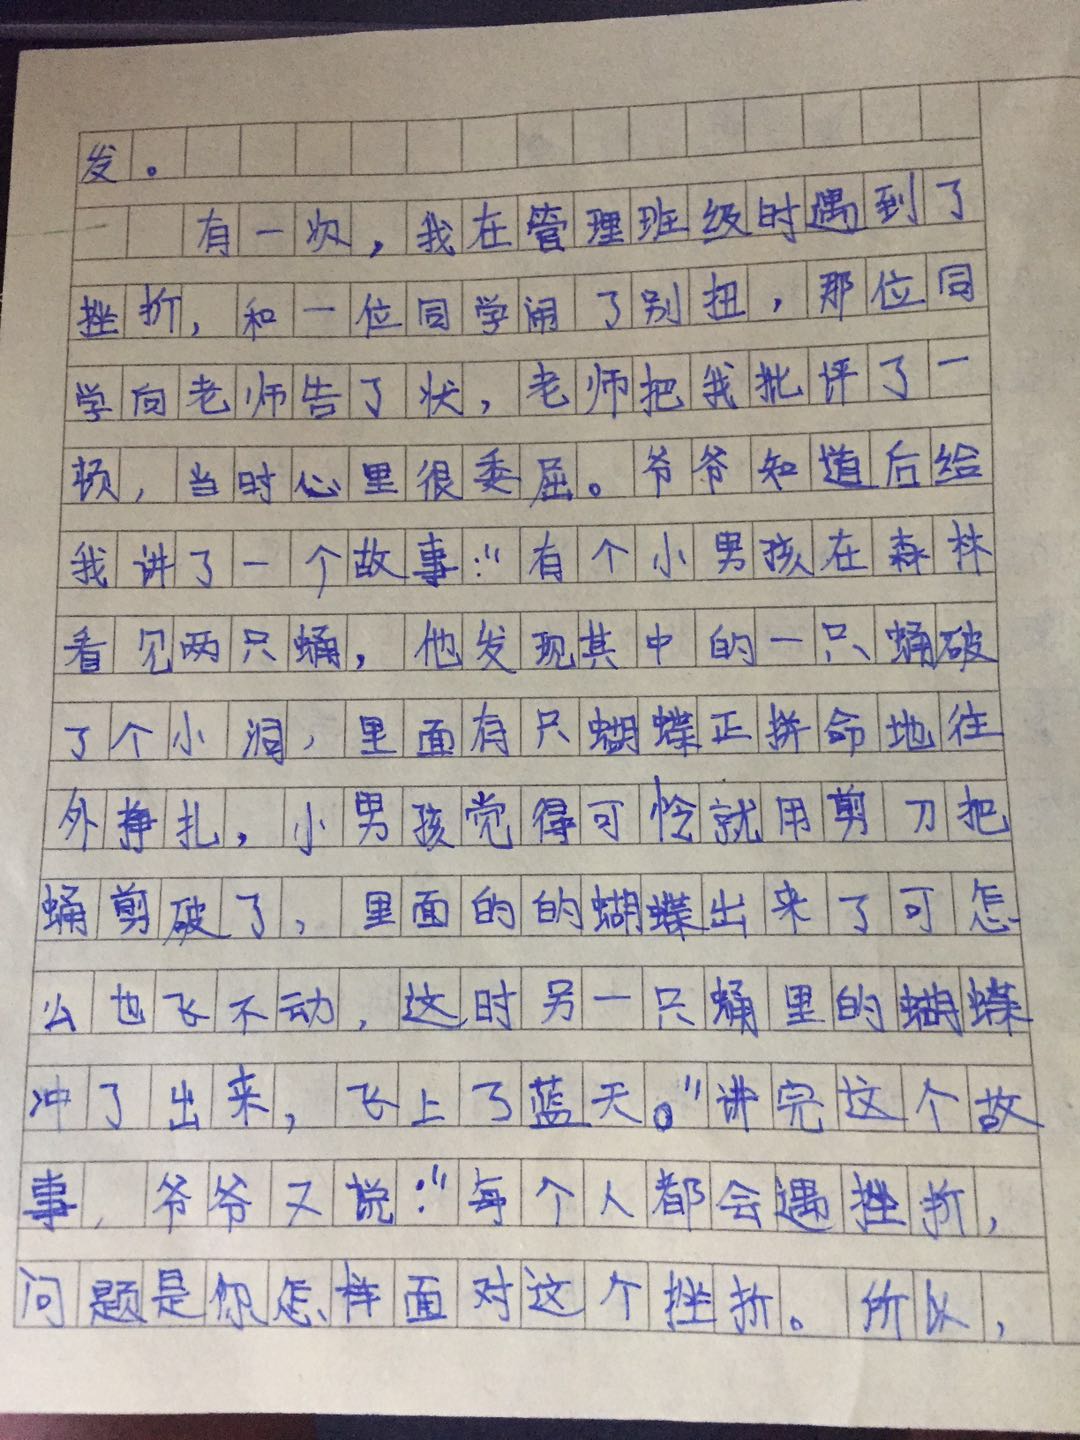 发。
有一次，我在管理班级时遇到了
挫折，和一位同学闹了别扭，那位同
学向老师告了状，老师把我批评了一
顿，当时心里很委屈。爷爷知道后给
我讲了一个故事：“有个小男孩在森林
看见两只蛹，他发现其中的一只蛹破
了个小洞，里面有只蝴蝶正拼命地往
外挣扎，小男孩觉得可怜就用剪刀把
蛹剪破了，里面的的蝴蝶出来了可怎
么也飞不动，这时另一只蛹里的蝴蝶
冲了出来，飞上了蓝天。”讲完这个故
事，爷爷又说：“每个人都会遇挫折，
问题是你怎样面对这个挫折。所以，